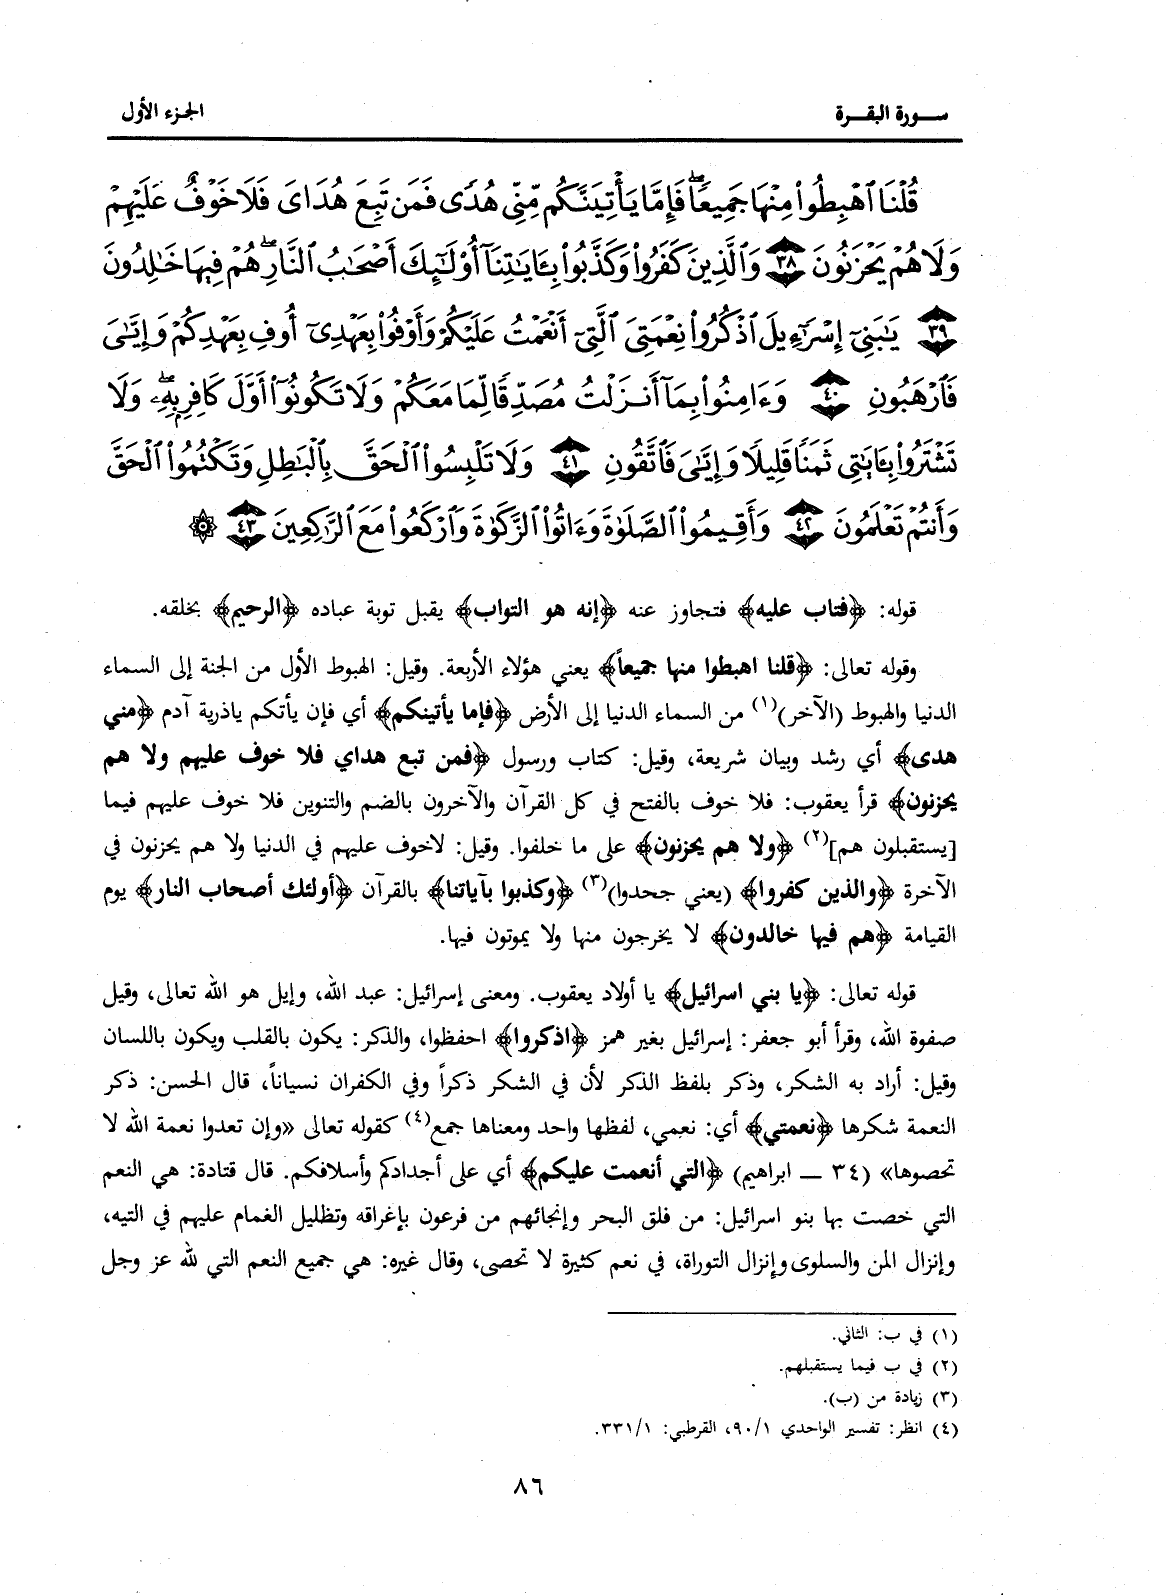 سورة البقرة
الجزء الأول
قُلْنَا ٱهْبِطُوا۟ مِنْهَا جَمِيعًۭا ۖ فَإِمَّا يَأْتِيَنَّكُم مِّنِّى هُدًۭى فَمَن تَبِعَ هُدَاىَ فَلَا خَوْفٌ عَلَيْهِمْ
وَلَا هُمْ يَحْزَنُونَ ٣٨ وَٱلَّذِينَ كَفَرُوا۟ وَكَذَّبُوا۟ بِـَٔايَـٰتِنَآ أُو۟لَـٰٓئِكَ أَصْحَـٰبُ ٱلنَّارِ ۖ هُمْ فِيهَا خَـٰلِدُونَ
٣٩ يَـٰبَنِىٓ إِسْرَٰٓءِيلَ ٱذْكُرُوا۟ نِعْمَتِىَ ٱلَّتِىٓ أَنْعَمْتُ عَلَيْكُمْ وَأَوْفُوا۟ بِعَهْدِىٓ أُوفِ بِعَهْدِكُمْ وَإِيَّـٰىَ
فَٱرْهَبُونِ ٤٠ وَءَامِنُوا۟ بِمَآ أَنزَلْتُ مُصَدِّقًۭا لِّمَا مَعَكُمْ وَلَا تَكُونُوٓا۟ أَوَّلَ كَافِرٍۭ بِهِۦ ۖ وَلَا
تَشْتَرُوا۟ بِـَٔايَـٰتِى ثَمَنًۭا قَلِيلًۭا وَإِيَّـٰىَ فَٱتَّقُونِ ٤١ وَلَا تَلْبِسُوا۟ ٱلْحَقَّ بِٱلْبَـٰطِلِ وَتَكْتُمُوا۟ ٱلْحَقَّ
وَأَنتُمْ تَعْلَمُونَ ٤٢ وَأَقِيمُوا۟ ٱلصَّلَوٰةَ وَءَاتُوا۟ ٱلزَّكَوٰةَ وَٱرْكَعُوا۟ مَعَ ٱلرَّٰكِعِينَ ٤٣
قوله: ﴿فتاب عليه﴾ فتجاوز عنه ﴿إنه هو التواب﴾ يقبل توبة عباده ﴿الرحيم﴾ بخلقه.
وقوله تعالى: ﴿قلنا اهبطوا منها جميعاً﴾ يعني هؤلاء الأربعة. وقيل: الهبوط الأول من الجنة إلى السماء
الدنيا والهبوط (الآخر)(١) من السماء الدنيا إلى الأرض ﴿فإما يأتينكم﴾ أي فإن يأتكم ياذرية آدم ﴿مني
هدى﴾ أي رشد وبيان شريعة، وقيل: كتاب ورسول ﴿فمن تبع هداي فلا خوف عليهم ولا هم
يحزنون﴾ قرأ يعقوب: فلا خوف بالفتح في كل القرآن والآخرون بالضم والتنوين فلا خوف عليهم فيما
[يستقبلون هم](٢) ﴿ولا هم يحزنون﴾ على ما خلفوا. وقيل: لاخوف عليهم في الدنيا ولا هم يحزنون في
الآخرة ﴿والذين كفروا﴾ (يعني جحدوا)(٣) ﴿وكذبوا بآياتنا﴾ بالقرآن ﴿أولئك أصحاب النار﴾ يوم
القيامة ﴿هم فيها خالدون﴾ لا يخرجون منها ولا يموتون فيها.
قوله تعالى: ﴿يا بني اسرائيل﴾ يا أولاد يعقوب. ومعنى إسرائيل: عبد الله، وإيل هو الله تعالى، وقيل
صفوة الله، وقرأ أبو جعفر: إسرائيل بغير همز ﴿اذكروا﴾ احفظوا، والذكر: يكون بالقلب ويكون باللسان
وقيل: أراد به الشكر، وذكر بلفظ الذكر لأن في الشكر ذكراً وفي الكفران نسياناً، قال الحسن: ذكر
النعمة شكرها ﴿نعمتي﴾ أي: نعمي، لفظها واحد ومعناها جمع(٤) كقوله تعالى «وإن تعدوا نعمة الله لا
تحصوها» (٣٤ ـ ابراهيم) ﴿التي أنعمت عليكم﴾ أي على أجدادكم وأسلافكم. قال قتادة: هي النعم
التي خصت بها بنو اسرائيل: من فلق البحر وإنجائهم من فرعون بإغراقه وتظليل الغمام عليهم في التيه،
وإنزال المن والسلوى وإنزال التوراة، في نعم كثيرة لا تحصى، وقال غيره: هي جميع النعم التي لله عز وجل
(١) في ب: الثاني.
(٢) في ب فيما يستقبلهم.
(٣) زيادة من (ب).
(٤) انظر: تفسير الواحدي ٩٠/١، القرطبي: ٣٣١/١.
٨٦